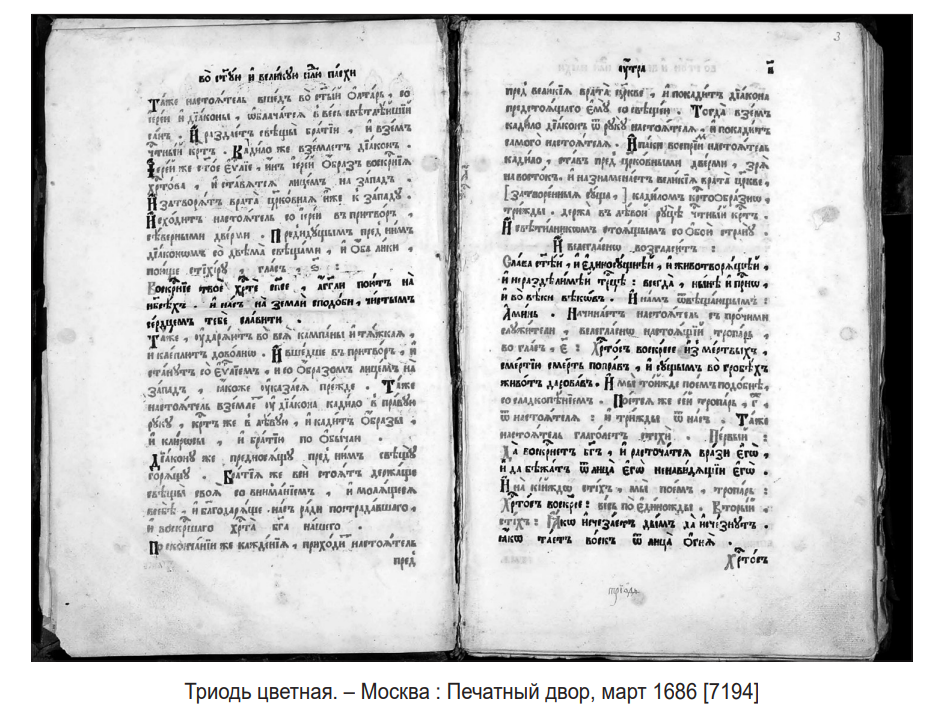 во ст҃ꙋю и҆ вели́кꙋю н҃лю па́схи
Та́же настоѧ́тель вше́дъ во ст҃ы́й ѻ҆лта́рь, со
і҆ере́и и҆ дїа́коны, ѡ҆блача́тсѧ в̾ ве́сь свѣтлѣ́йшїй
са́нъ . И҆ раздае́тъ свѣщы̀ бра́тїи , и҆ взе́мъ
чⷭ҇тны́й крⷭ҇тъ . Кади́ло же взе́млетъ дїа́конъ .
І҆ере́й же ст҃о́е є҆ѵⷢ҇лїе , и҆́нъ і҆ере́й ѻ҆́бразъ воскрⷭ҇нїѧ
хрⷭ҇то́ва , и҆ ста́вѧтсѧ лице́мъ на за́падъ .
И҆ затворѧ́тъ врата̀ цр҃ко́внаѧ и҆́же к̾ за́падꙋ .
И҆схо́дитъ настоѧ́тель со і҆ере́и въ притво́ръ ,
сѣ́верными две́рми . Пред̾идꙋ́щымъ пред̾ ни́мъ
дїа́кономъ со двѣма̀ свѣща́ми , и҆ ѻ҆́ба ли́ки ,
пою́ще стїхи́рꙋ , гла́съ , ѕ҃ :
Воскрⷭ҇нїе твоѐ хрⷭ҇тѐ сп҃се , а҆́гг҃ли пою́тъ на
нб҃сѣ́хъ . и҆ на́съ , на землѝ сподо́би , чи́стымъ
се́рдцемъ тебѐ сла́вити .
Та́же , ᲂу҆дарѧ́ютъ во всѧ̀ кампа́ны и҆ тѧ́жкаѧ ,
и҆ клеплю́тъ дово́лно . И҆ вше́дше въ притво́ръ , и҆
ста́нꙋтъ со є҆ѵⷢ҇лїемъ , и҆ со ѻ҆́бразомъ лице́мъ на
за́падъ , ꙗ҆́коже ᲂу҆каза́сѧ пре́жде . Та́же
настоѧ́тель взе́млетъ ᲂу҆ дїа́кона кади́ло в̾ пра́вꙋю
рꙋ́кꙋ , крⷭ҇тъ же в̾ лѣ́вꙋю , и҆ кади́тъ ѻ҆́бразы ,
и҆ кли́росы , и҆ бра́тїю по ѻ҆бы́чаю .
Дїа́конꙋ же предносѧ́щꙋ пред̾ ни́мъ свѣщꙋ̀
горѧ́щꙋ . Бра́тїѧ же всѝ стоѧ́тъ держа́ще
свѣщы̀ своѧ̀ со внима́нїемъ , и҆ молѧ́щесѧ
в̾себѣ̀ , и҆ благодарѧ́ще . на́съ ра́ди пострада́вшаго ,
и҆ воскр҃шаго хрⷭ҇та̀ бг҃а на́шего .
По сконча́нїи же кажде́нїѧ , прихо́дитъ настоѧ́тель
пред̾
3
ᲂу҆́трѧ
пред̾ вели́каѧ врата̀ цр҃кве , и҆ покади́тъ дїа́кона
предстоѧ́щаго є҆мꙋ̀ со свѣще́ю . Тогда̀ взе́мъ
кади́ло дїа́конъ ѿ рꙋкꙋ̀ настоѧ́телѧ , и҆ покади́тъ
самого̀ настоѧ́телѧ . И҆ па́ки воспрїи́мъ настоѧ́тель
кади́ло , ста́въ пред̾ цр҃ко́вными две́рми , зрѧ̀
на восто́къ , и҆ назна́менаетъ вели́каѧ врата̀ цр҃кве ,
[затворє́ннымъ сꙋ́щымъ ,] кади́ломъ крⷭ҇тоѻбра́знѡ ,
три́жды . держа̀ в̾ лѣ́вой рꙋцѣ̀ чⷭ҇тны́й крⷭ҇тъ .
И҆ свѣти́лникѡмъ стоѧ́щымъ со ѻ҆бою̀ странꙋ̀ .
И҆ велегла́снѡ возгласи́тъ :
Сла́ва ст҃ѣ́й , и҆ є҆диносꙋ́щнѣй , и҆ животворѧ́щей ,
и҆ нераздѣ́лимѣй трⷪ҇цѣ : всегда̀ , ны́нѣ и҆ при́снѡ ,
и҆ во вѣ́ки вѣкѡ́въ . И҆ на́мъ ѿвѣща́вшымъ :
А҆ми́нь . Начина́етъ настоѧ́тель съ про́чими
слꙋжи́тели , велегла́снѡ настоѧ́щїй тропа́рь ,
во гла́съ , є҃ : Хрⷭ҇то́съ воскре́се и҆з̾ ме́ртвыхъ ,
сме́ртїю сме́рть попра́въ , и҆ сꙋ́щымъ во гробѣ́хъ
живо́тъ дарова́въ . И҆ мы̀ то́йжде пое́мъ подо́бнѣ ,
со сладкопѣ́нїемъ . Пое́тсѧ же се́й тропа́рь , г҃ ,
ѿ настоѧ́телѧ : и҆ три́жды ѿ на́съ . Та́же
настоѧ́тель глаго́летъ стїхѝ . Пе́рвый :
Да воскрⷭ҇нетъ бг҃ъ , и҆ расточа́тсѧ вразѝ є҆гѡ̀ ,
и҆ да бѣжа́тъ ѿ лица̀ є҆гѡ̀ ненави́дѧщїи є҆го̀ .
И҆ на кі́йждо сті́хъ , мы̀ пое́мъ , тропа́рь :
Хрⷭ҇то́съ воскре́се : ве́сь по є҆ди́ножды . Вторы́й ,
сті́хъ : Ꙗ҆́кѡ и҆счеза́етъ ды́мъ да и҆сче́знꙋтъ .
ꙗ҆́кѡ та́етъ во́скъ ѿ лица̀ ѻ҆гнѧ̀ .
Хрⷭ҇то́съ
трїодь
Триодь цветная. – Москва : Печатный двор, март 1686 [7194]